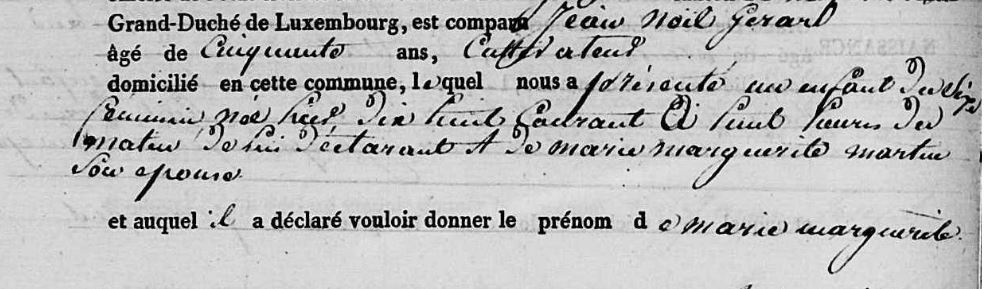 Grand-Duché de Luxembourg, est comparu Jean Noël Gerard
âgé de Cinquante ans, Cultivateur
domicilié en cette commune, lequel nous a présenté un enfant du sexe
féminin née hier dix huit Courant à huit heures du
matin de lui déclarant et de marie marguerite martin
Son epouse
et auquel il a déclaré vouloir donner le prénom de marie marguerite.